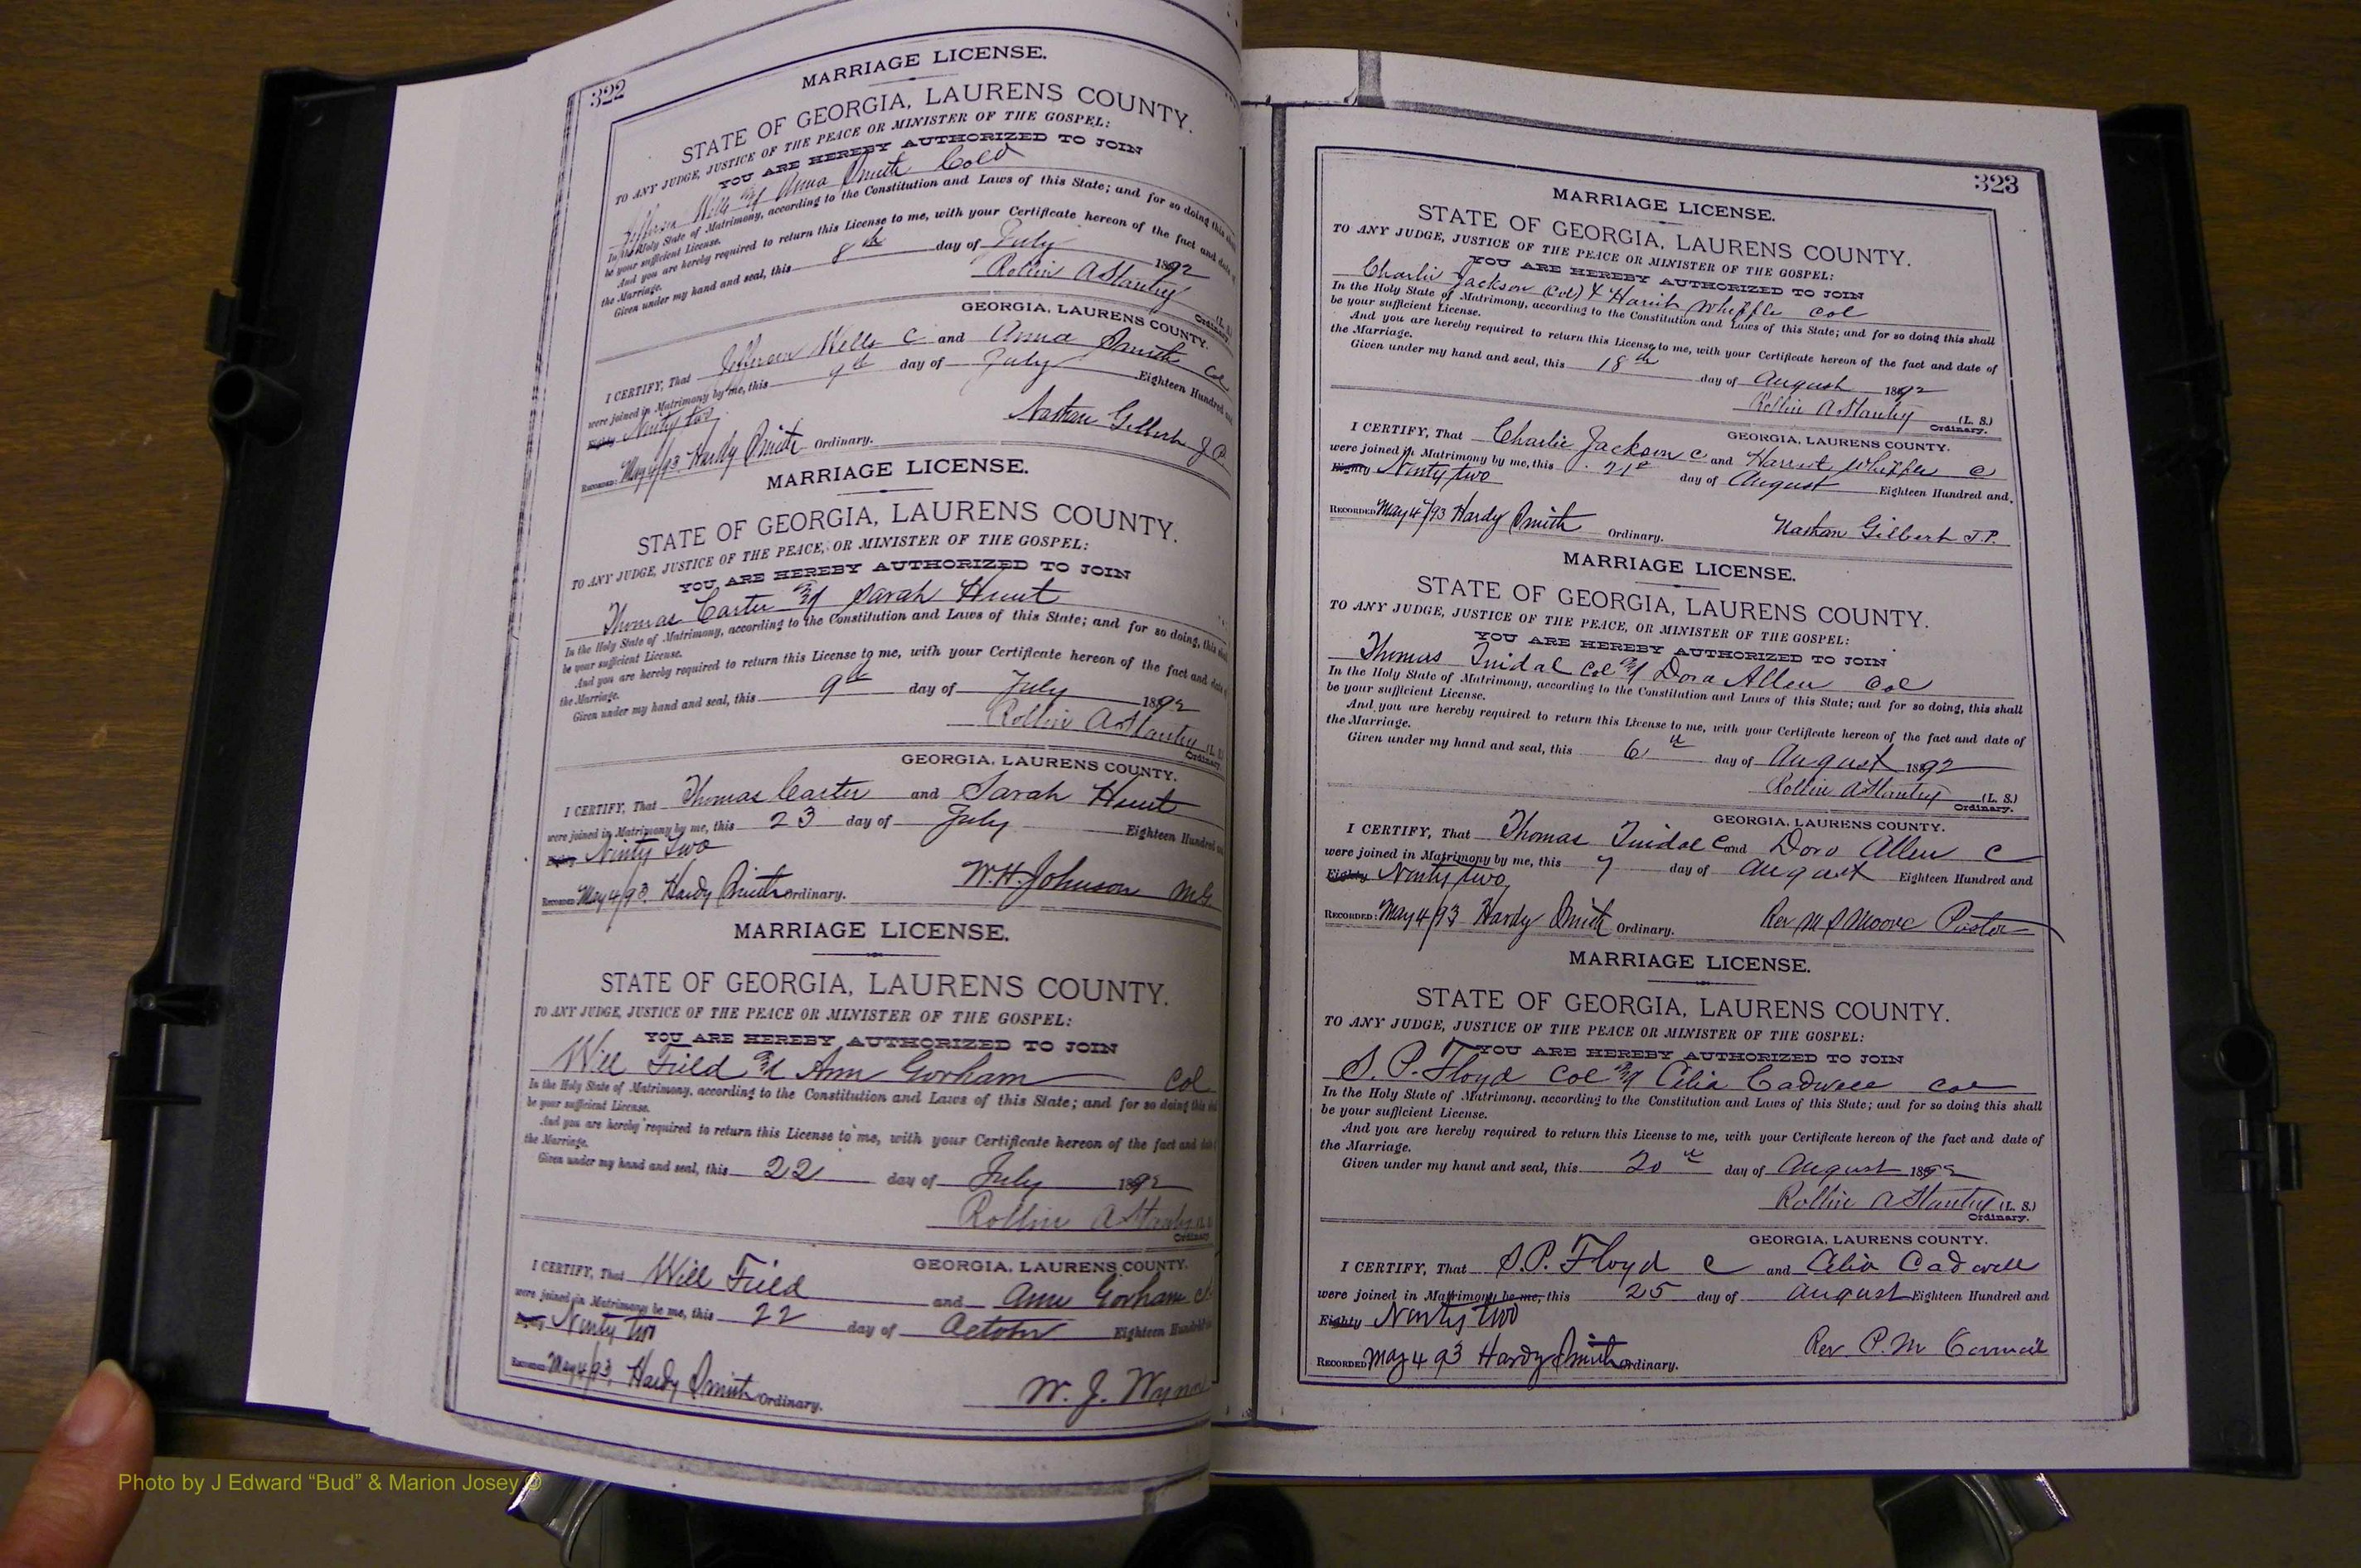 322
MARRIAGE LICENSE.
STATE OF GEORGIA, LAURENS COUNTY.
TO ANY JUDGE, JUSTICE OF THE PEACE OR MINISTER OF THE GOSPEL:
YOU ARE HEREBY AUTHORIZED TO JOIN
Jefferson Wells and Anna Smith Cold
In the Holy State of Matrimony, according to the Constitution and Laws of this State; and for so doing this shall
be your sufficient License.
And you are hereby required to return this License to me, with your Certificate hereon of the fact and date of
the Marriage.
Given under my hand and seal, this 8th day of July 1892
Rollin A Stanley (L. S.)
Ordinary.
GEORGIA, LAURENS COUNTY.
I CERTIFY, That Jefferson Wells C and Anna Smith Col
were joined in Matrimony by me, this day of July Eighteen Hundred and
Eighty Ninty two
Nathan Gilbert J P
RECORDED: May 4/93 Hardy Smith Ordinary.
MARRIAGE LICENSE.
STATE OF GEORGIA, LAURENS COUNTY.
TO ANY JUDGE, JUSTICE OF THE PEACE, OR MINISTER OF THE GOSPEL:
YOU ARE HEREBY AUTHORIZED TO JOIN
Thomas Carter and Sarah Hunt
In the Holy State of Matrimony, according to the Constitution and Laws of this State; and for so doing, this shall
be your sufficient License.
And you are hereby required to return this License to me, with your Certificate hereon of the fact and date
the Marriage.
Given under my hand and seal, this 9th day of July 1892
Rollin A Stanley (L. S.)
Ordinary.
GEORGIA, LAURENS COUNTY.
I CERTIFY, That Thomas Carter and Sarah Hunt
were joined in Matrimony by me, this 23 day of July Eighteen Hundred and
Eighty Ninty two
W. H. Johnson M.G.
RECORDED May 4/93. Hardy Smith Ordinary.
MARRIAGE LICENSE.
STATE OF GEORGIA, LAURENS COUNTY.
TO ANY JUDGE, JUSTICE OF THE PEACE OR MINISTER OF THE GOSPEL:
YOU ARE HEREBY AUTHORIZED TO JOIN
Will Field and Ann Gorham Col
In the Holy State of Matrimony, according to the Constitution and Laws of this State; and for so doing this shall
be your sufficient License.
And you are hereby required to return this License to me, with your Certificate hereon of the fact and date
the Marriage.
Given under my hand and seal, this 22 day of July 1892
Rollin A Stanley
Ordinary
GEORGIA, LAURENS COUNTY.
I CERTIFY, That Will Field and Ann Gorham
were joined in Matrimony be me, this 22 day of Eighteen Hundred
Eighty Ninty two
RECORDED May 4/93, Hardy Smith Ordinary.
W. J.
323
MARRIAGE LICENSE.
STATE OF GEORGIA, LAURENS COUNTY.
TO ANY JUDGE, JUSTICE OF THE PEACE OR MINISTER OF THE GOSPEL:
YOU ARE HEREBY AUTHORIZED TO JOIN
Charlie Jackson (Col) & Whipple Col
In the Holy State of Matrimony, according to the Constitution and Laws of this State; and for so doing this shall
be your sufficient License.
And you are hereby required to return this License to me, with your Certificate hereon of the fact and date of
the Marriage.
Given under my hand and seal, this 18th day of August 1892
Rollin A Stanley (L. S.)
Ordinary.
GEORGIA, LAURENS COUNTY.
I CERTIFY, That Charlie Jackson C and Harriet Whipple C
were joined in Matrimony by me, this 21st day of August Eighteen Hundred and.
Eighty Ninty two
RECORDED May 4/93 Hardy Smith Ordinary.
Nathan Gilbert J.P.
MARRIAGE LICENSE.
STATE OF GEORGIA, LAURENS COUNTY.
TO ANY JUDGE, JUSTICE OF THE PEACE, OR MINISTER OF THE GOSPEL:
YOU ARE HEREBY AUTHORIZED TO JOIN
Thomas Col and Dora Allen Col
In the Holy State of Matrimony, according to the Constitution and Laws of this State; and for so doing, this shall
be your sufficient License.
And you are hereby required to return this License to me, with your Certificate hereon of the fact and date of
the Marriage.
Given under my hand and seal, this 6th day of August 1892
Rollin A Stanley (L. S.)
Ordinary.
GEORGIA, LAURENS COUNTY.
I CERTIFY, That Thomas C and Dora Allen C
were joined in Matrimony by me, this 7 day of August Eighteen Hundred and
Eighty Ninty two
RECORDED: May 4/93 Hardy Smith Ordinary.
Rev M Moore Pastor
MARRIAGE LICENSE.
STATE OF GEORGIA, LAURENS COUNTY.
TO ANY JUDGE, JUSTICE OF THE PEACE OR MINISTER OF THE GOSPEL:
YOU ARE HEREBY AUTHORIZED TO JOIN
S. P. Floyd Col and Celia Cadwell Col
In the Holy State of Matrimony, according to the Constitution and Laws of this State; and for so doing this shall
be your sufficient License.
And you are hereby required to return this License to me, with your Certificate hereon of the fact and date of
the Marriage.
Given under my hand and seal, this 20th day of August 1892
Rollin A Stanley (L. S.)
Ordinary.
GEORGIA, LAURENS COUNTY.
I CERTIFY, That S. P. Floyd C and Celia Cadwell
were joined in Matrimony be me, this 25 day of August Eighteen Hundred and
Eighty Ninty two
RECORDED May 4 93 Hardy Smith Ordinary.
Rev. P. M
Photo by J Edward “Bud” & Marion Josey ©